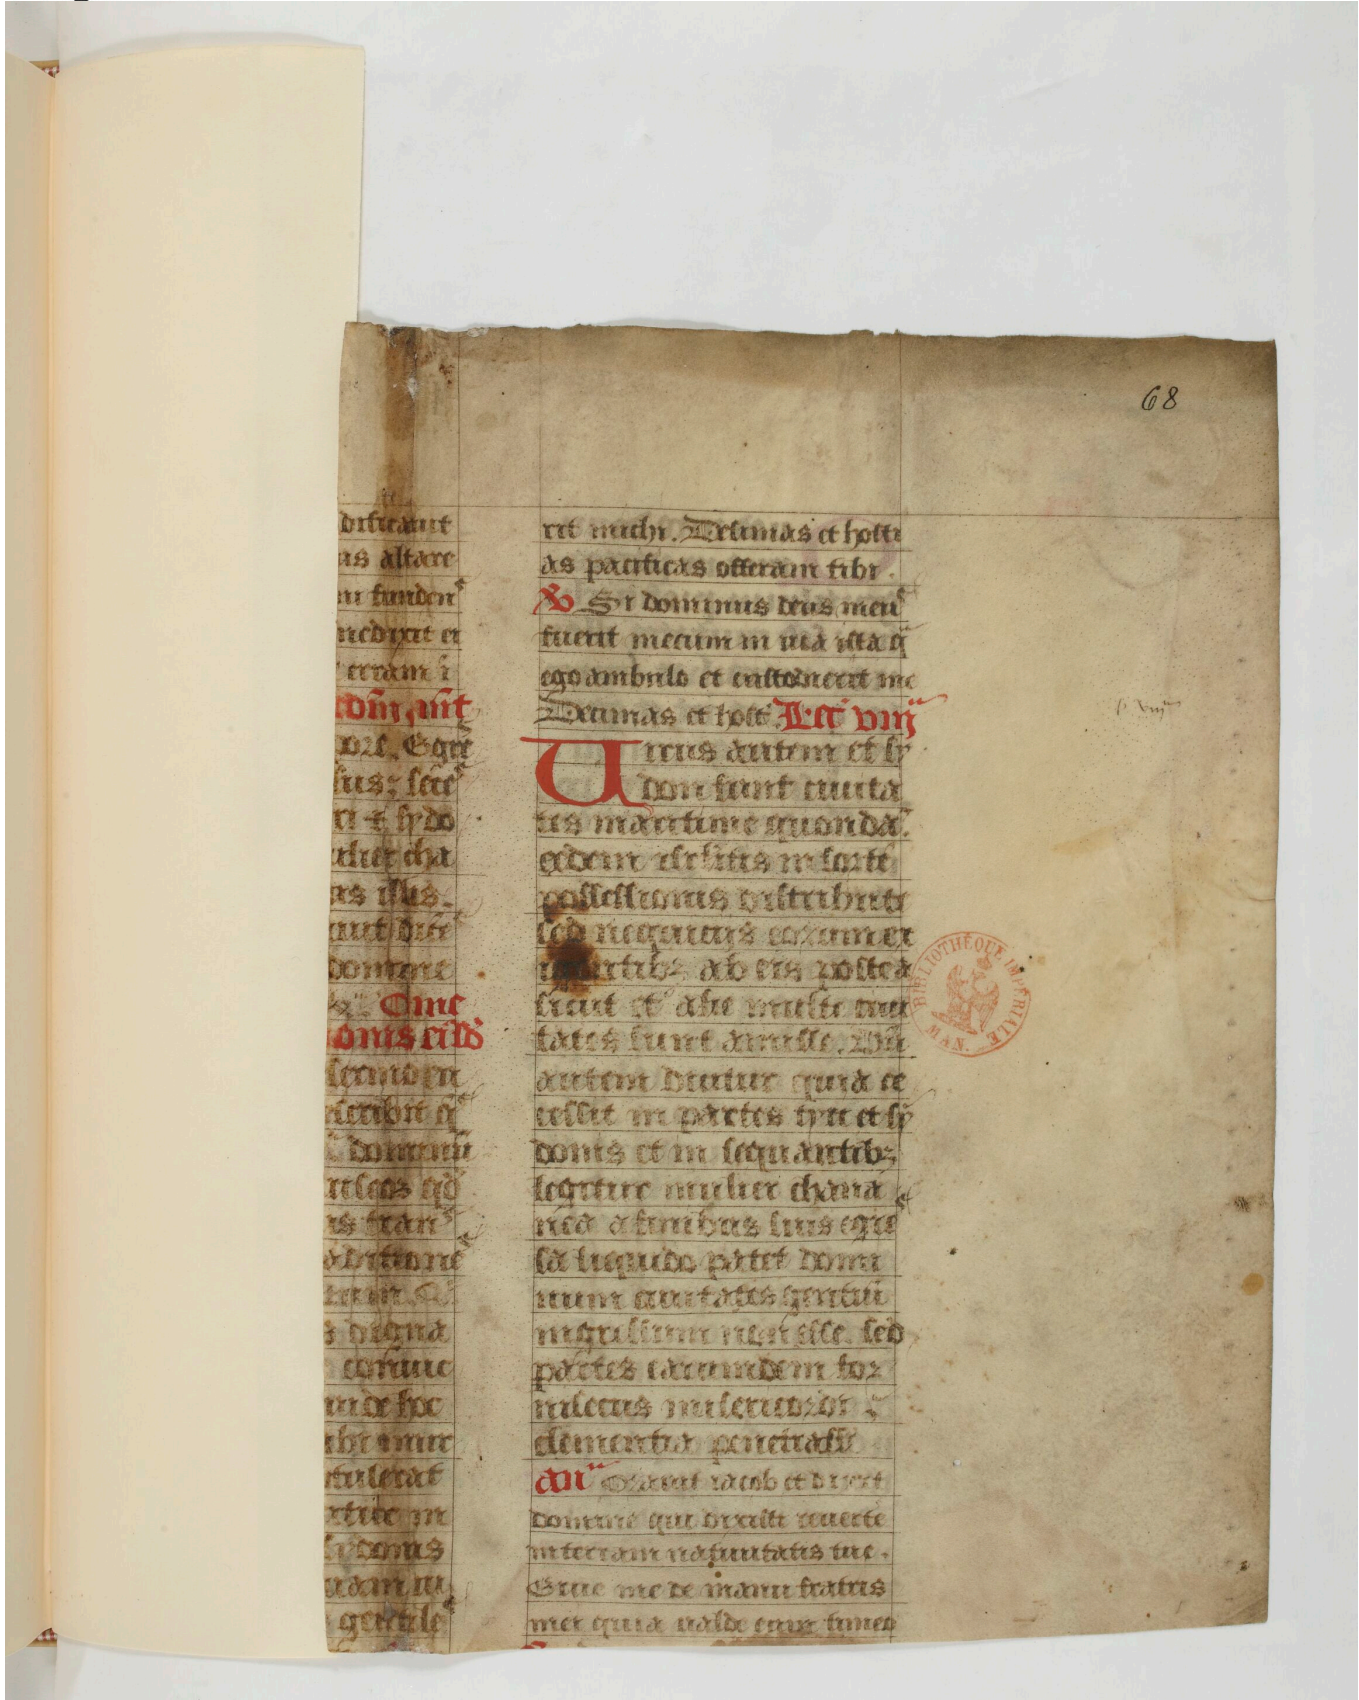 68
dificauit
us altare
ni funden
nedixit ei
terram i
dñi. uit
ore. Egre
sus: sece
ri et sydo
ulier cha
us illis.
auit dice
domine
Ome
onis eiusd
sermo eu
scribit q
dominū
riseos qd
as tran
aditione
tum. Q
s digna
conuic
unde hoc
ubi mir
ntulerat
rtire in
sydonis
uam iu
gentile
rit michi. Decimas et hosti
as pacificas offeram tibi.
V Si dominus deus meu
fuerit mecum in uia ista q
ego ambulo et custodierit me
Decimas et host. Lect viij
Tirus autem et sy
don sunt ciuita
tes maritime quonda
eidem isrlitis in sorte
possessionis distribute
sed nequiciis eorum ex
igentibz ab eis postea
sicut et alie multe ciui
tates sunt amisse. Dū
autem dicitur quia se
cessit in partes tyri et sy
donis et in sequentibz
legitur mulier chana
nea a finibus suis egre
sa liquido patet domi
num ciuitates gentiū
ingressum non esse. sed
partes earumdem for
insecus misericordi
clementia penetrasse
an Orauit iacob et dixit
domine qui dixisti reuerte
in terram natiuitatis tue.
Erue me de manu fratris
mei quia ualde eum timeo
p. viij
BIBLIOTHÈQUE IMPÉRIALE MAN.